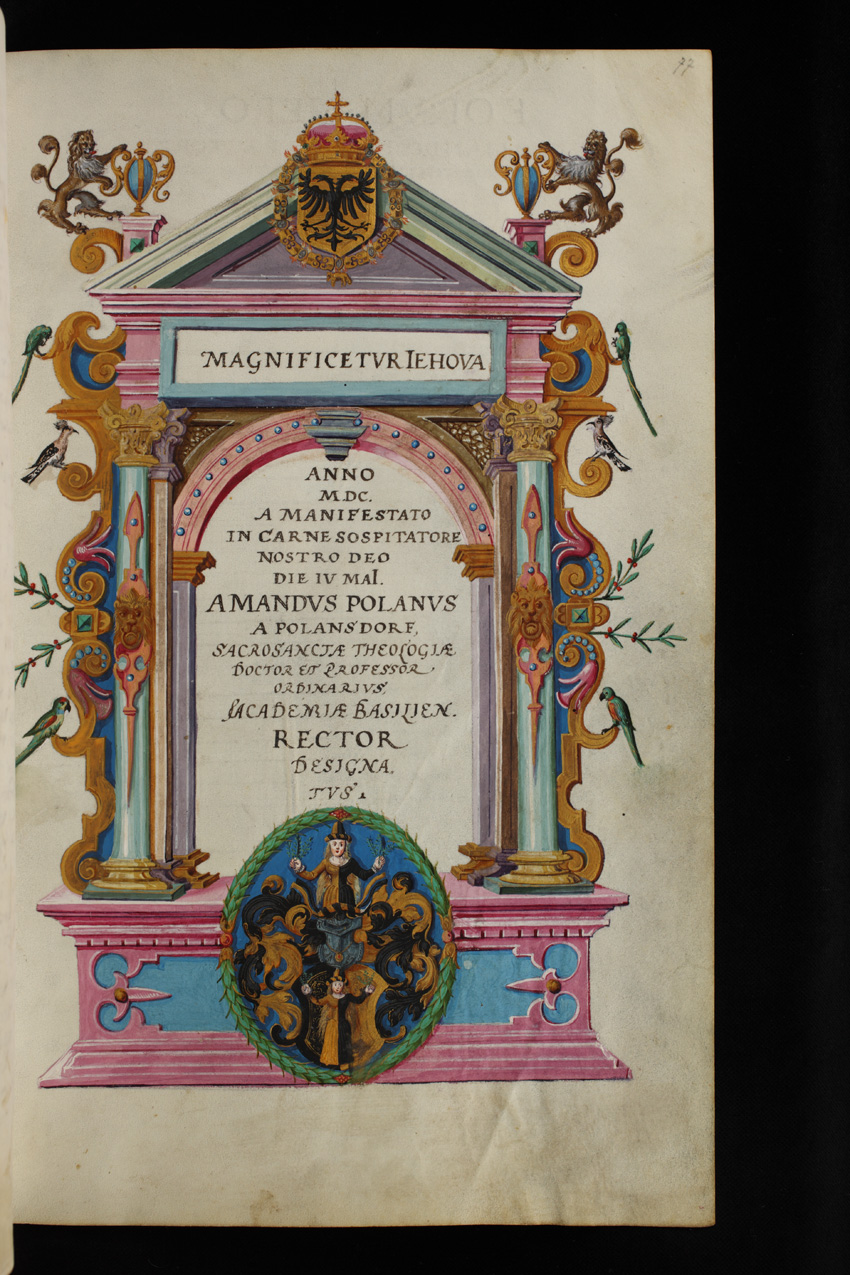 77
MAGNIFICETVR IEHOVA
ANNO
MDC.
A MANIFESTATO
IN CARNE SOSPITATORE
NOSTRO DEO
DIE IV MAI.
AMANDVS POLANVS
A POLANSDORF,
SACROSANCTÆ THEOLOGIÆ
DOCTOR ET PROFESSOR
ORDINARIVS,
ACADEMIÆ BASILIEN.
RECTOR
DESIGNA.
TVS.